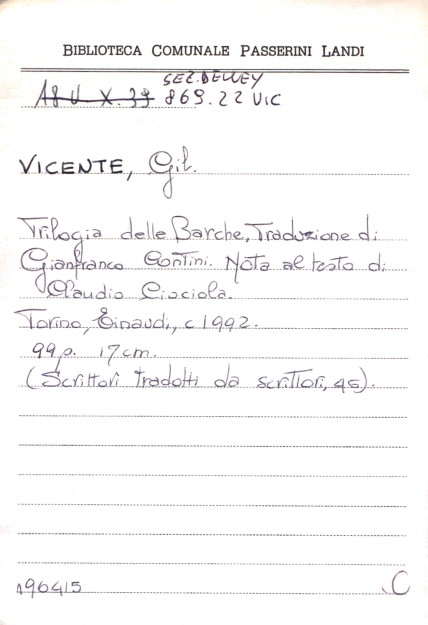 BIBLIOTECA COMUNALE PASSERINI LANDI
SEZ. DEWEY
A8 U X. 39 869.22 VIC
VICENTE, Gil.
Trilogia delle Barche, Traduzione di
Gianfranco Contini. Nota al testo di
Claudio Ciociola.
Torino, Einaudi, c 1992.
99 p. 17 cm.
(Scrittori tradotti da scrittori, 45).
196415 C